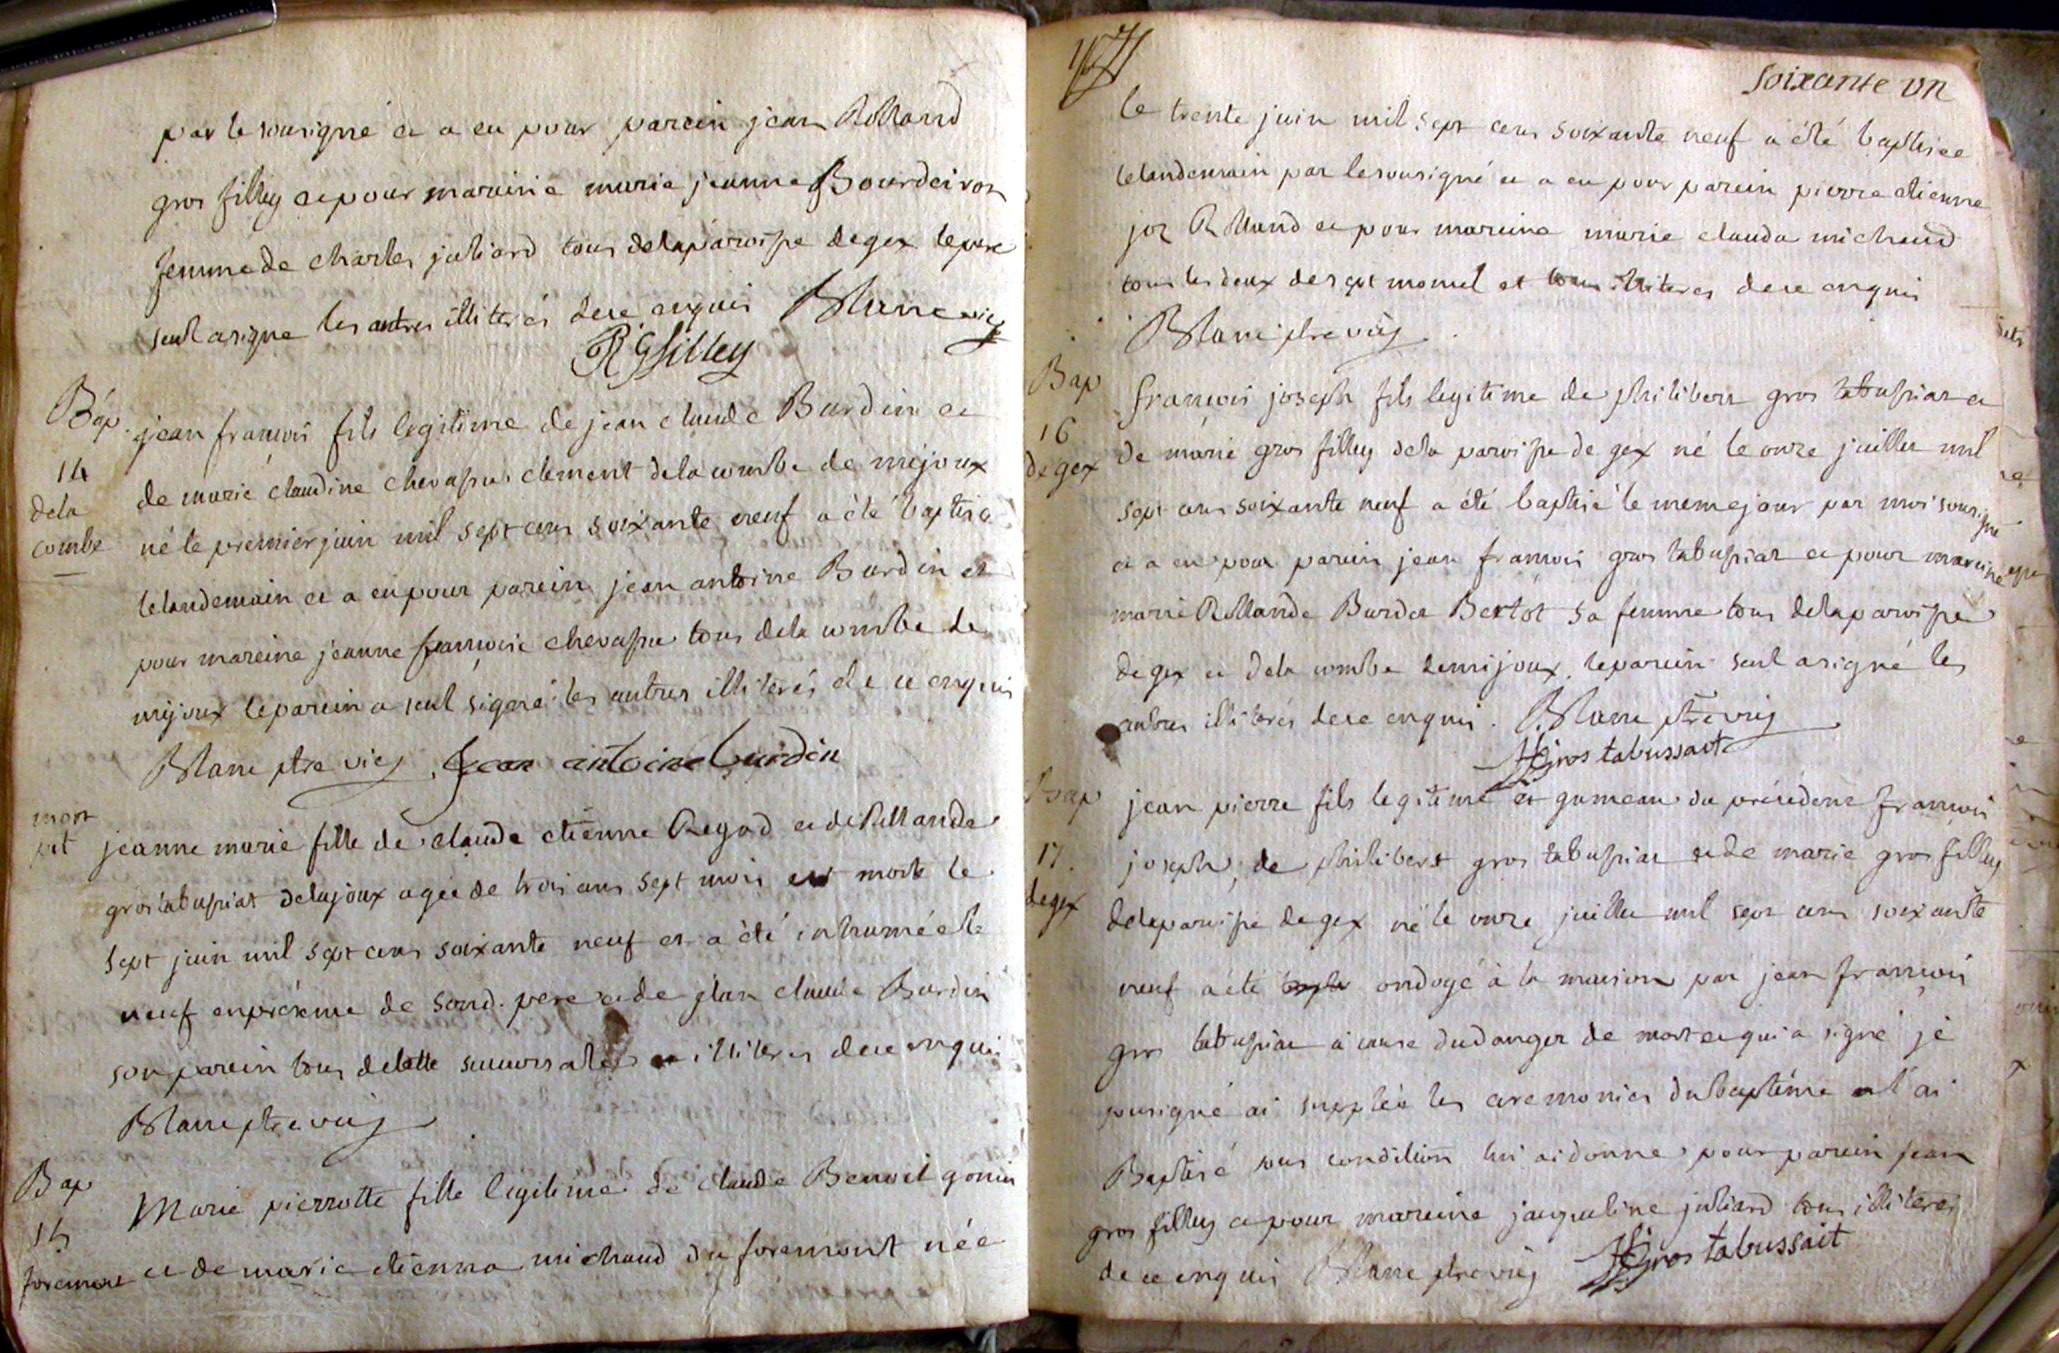 par le sousigné et a eu pour parein jean Rolland
gros filley et pour mareine marie jeanne Bourdeiron
femme de charles juliard tous de la paroisse de gex le pere
seul a signé les autres illiterés de ce enquis Blanc vic
R Gfilley
Bap. jean francois fils legitime de jean claude Burdin et
14 de marie claudine chevassu clement de la combe de mijoux
de la
combe né le premier juin mil sept cens soixante neuf a été baptisé
le landemain et a eu pour parein jean antoine Burdin et
pour mareine jeanne francoise chevassu tous de la combe de
mijoux le parein a seul signé les autres illiterés de ce enquis
Blanc ptre vic jean antoine burdin
mort
pet jeanne marie fille de claude etienne Regad et de Rollande
gros tabussiat de lajoux agée de trois ans sept mois est morte le
sept juin mil sept cens soixante neuf et a été inhumée le
neuf en présence de sond. pere et de jean claude Burdin
son parein tous de cette succursale et illiterés de ce enquis
Blanc ptre vic
Bap Marie pierrotte fille legitime de claude Benoit gonin
15
foremont et de marie etienna michaud du foremont née
soixante un
le trente juin mil sept cens soixante neuf a été baptisée
le landemain par le sousigné et a eu pour parein pierre etienne
joz Rolland et pour mareine marie clauda michaud
tous les deux de sept moncel et tous illiteres de ce enquis
Blanc ptre vic
Bap francois joseph fils legitime de philibert gros tabussiat et
16
de gex de marie gros filley de la paroisse de gex né le onze juillet mil
sept cens soixante neuf a été baptisé le meme jour par moi sousigné
et a eu pour parein jean francois gros tabussiat et pour mareine
marie Rollande Burdet Bertot sa femme tous de la paroisse
de gex et de la combe de mijoux le parein seul a signé les
autres illiterés de ce enquis. Blanc ptre vic
gros tabussait
Bap jean pierre fils legitime et gumeau du précédent francois
17 joseph, de philibert gros tabussiat et de marie gros filley
de gex de la paroisse de gex né le onze juillet mil sept cens soixante
neuf a été ondoyé à la maison par jean francois
gros tabussiat à cause du danger de mort et qui a signé je
sousigné ai suppléé les ceremonies du baptéme et l'ai
Baptisé sous condition lui ai donné pour parein jean
gros filley et pour mareine jacqueline juliard tous illiteres
de ce enquis Blanc ptre vic gros tabussait